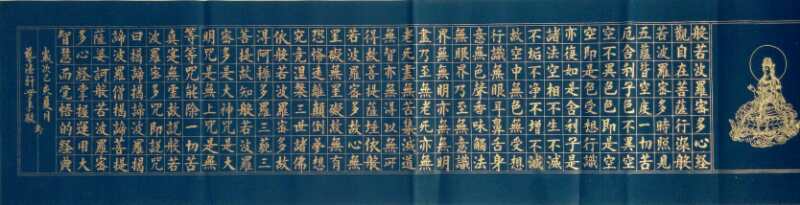 般若波羅蜜多心經
觀自在菩薩行深般
若波羅蜜多時照見
五蘊皆空度一切苦
厄舍利子色不異空
空不異色色即是空
空即是色受想行識
亦復如是舍利子是
諸法空相不生不滅
不垢不淨不增不減
故空中無色無受想
行識無眼耳鼻舌身
意無色聲香味觸法
無眼界乃至無意識
界無無明亦無無明
盡乃至無老死亦無
老死盡無苦集滅道
無智亦無得以無所
得故菩提薩埵依般
若波羅蜜多故心無
罣礙無罣礙故無有
恐怖遠離顛倒夢想
究竟涅槃三世諸佛
依般若波羅蜜多故
淂阿耨多羅三藐三
菩提故知般若波羅
密多是大神咒是大
明咒是無上咒是無
等等咒能除一切苦
真寔無虛故說般若
波羅密多咒即說咒
曰揭諦揭諦波羅揭
諦波羅僧揭諦菩提
薩婆訶般若波羅密
多心經掌握運用大
智慧而覺悟的經典
歲次己亥夏月